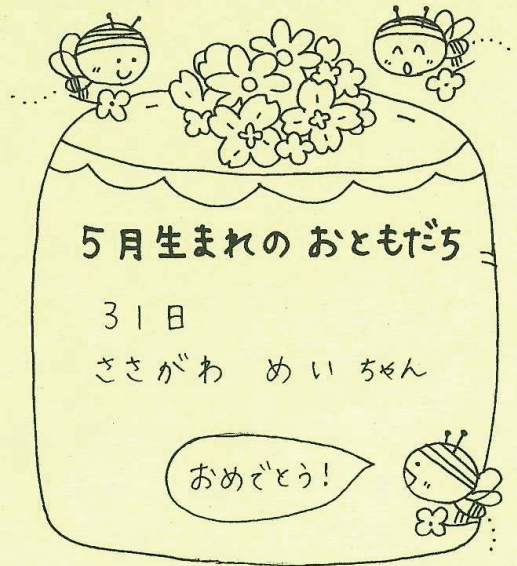 5月生まれの おともだち
31日
ささがわ めい ちゃん
おめでとう!